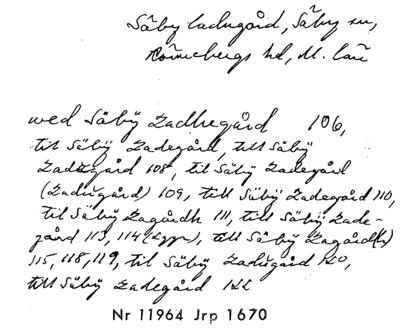 Säby ladugård, Säby sn,
Rönnebergs hd, M. län
wed Säbÿ Ladhegård 106,
til Säbÿ Ladegård, till Säbÿ
Ladugård 108, til Säbÿ Ladegård
(Ladŭgård) 109, till Säbÿ Ladegård 110,
til Säbÿ Lagårdh 111, till Säbÿ Lade-
gård 113, 114 (2 ggr), till Säbÿ Lagård(h)
115, 118, 119, til Säbÿ Ladŭgård 120,
till Säbÿ Ladegård 122
Nr 11964 Jrp 1670